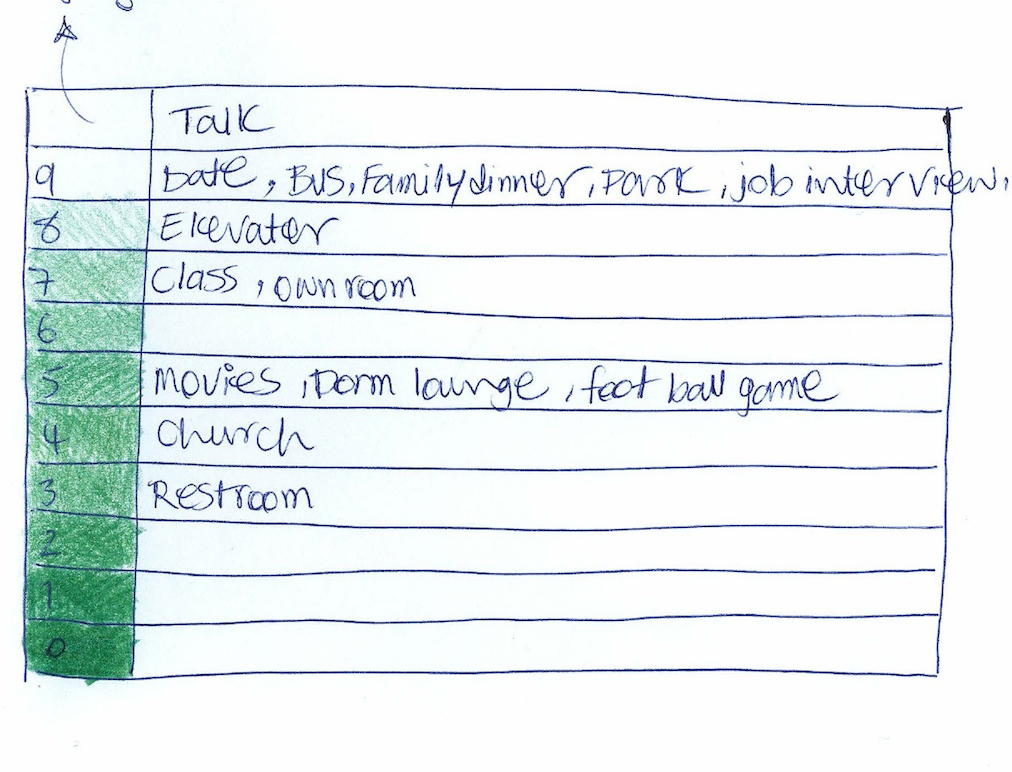 Talk
9 Date, BUS, Family dinner, Park, job interview,
8 Elevater
7 Class, own room
6
5 movies, Dorm lounge, foot ball game
4 church
3 Restroom
2
1
0